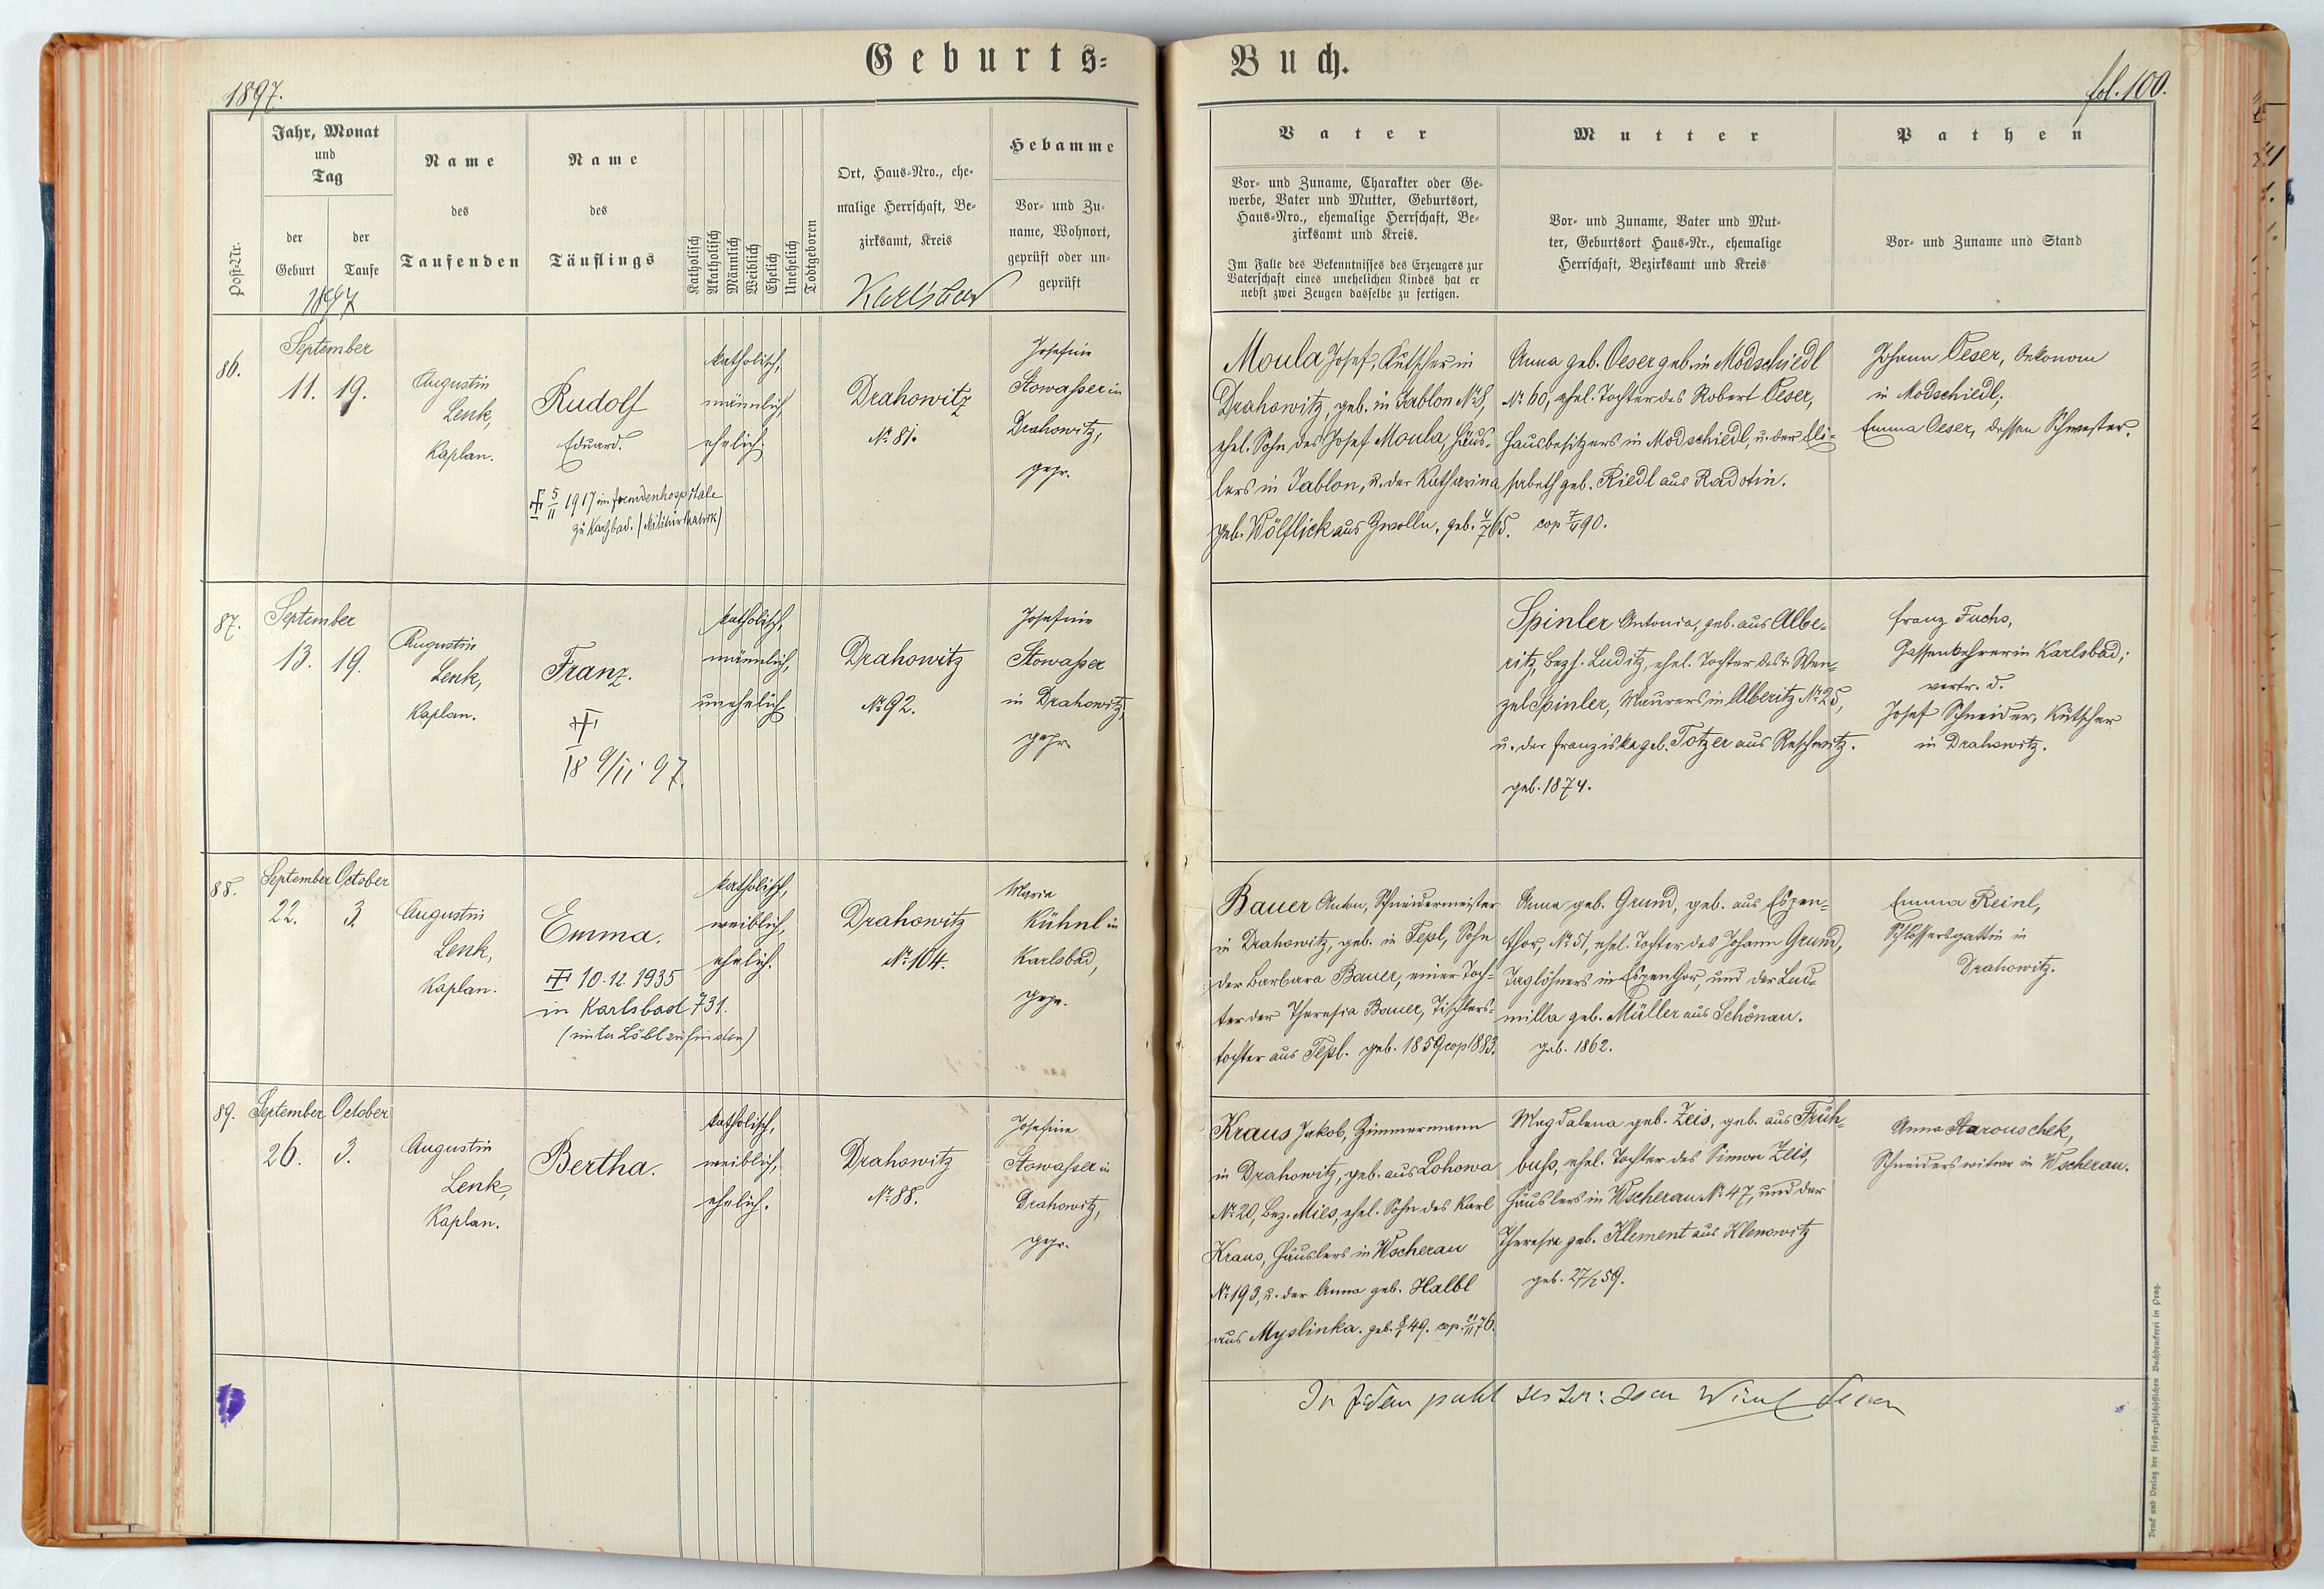 Geburts-
Buch.
1897.
fol. 100.
Post-Nr.
Jahr, Monat
und
Tag
der
Geburt
der
Taufe
1897
Name
des
Taufenden
Name
des
Täuflings
Katholisch
Akatholisch
Männlich
Weiblich
Ehelich
Unehelich
Todtgeboren
Ort, Haus-Nro., ehe-
malige Herrschaft, Be-
zirksamt, Kreis
Karlsbad
Hebamme
Vor- und Zu-
name, Wohnort,
geprüft oder un-
geprüft
Vater
Vor- und Zuname, Charakter oder Ge-
werbe, Vater und Mutter, Geburtsort,
Haus-Nro., ehemalige Herrschaft, Be-
zirksamt und Kreis.
Im Falle des Bekenntnisses des Erzeugers zur
Vaterschaft eines unehelichen Kindes hat er
nebst zwei Zeugen dasselbe zu fertigen.
Mutter
Vor- und Zuname, Vater und Mut-
ter, Geburtsort Haus-Nr., ehemalige
Herrschaft, Bezirksamt und Kreis
Pathen
Vor- und Zuname und Stand
86.
September
11. 19.
Augustin
Lenk,
Kaplan.
Rudolf
Eduard.
5/II 1917 im Fremdenhospitale
zu Karlsbad.
katholisch,
männlich,
ehelich.
Drahowitz
№ 81.
Josefine
Stowasser in
Drahowitz,
gepr.
Moula Josef, Kutscher in
Drahowitz, geb. in Jablon № 8,
ehel. Sohn des Josef Moula, Häus-
lers in Jablon, u. der Katharina
geb. Wölflick aus Zwolln, geb. 4/7 65. cop 7/4 90.
Anna geb. Oeser geb. in Modschiedl
№ 60, ehel. Tochter des Robert Oeser,
Hausbesitzers in Modschiedl, u. der Eli-
sabeth geb. Riedl aus Radotin.
Johann Oeser, Oekonom
in Modschiedl;
Emma Oeser, dessen Schwester.
87.
September
13. 19.
Augustin
Lenk,
Kaplan.
Franz.
18 9/11 97.
katholisch,
männlich,
unehelich.
Drahowitz
№ 92.
Josefine
Stowasser
in Drahowitz,
gepr.
Spinler Antonia, geb. aus Albe-
ritz, Bezh. Luditz, ehel. Tochter des † Wen-
zel Spinler, Maurers in Alberitz № 25,
u. der Franziska geb. Totzer aus Reschwitz.
geb. 1874.
Franz Fuchs,
Gassenkehrer in Karlsbad;
vertr. d.
Josef Schneider, Kutscher
in Drahowitz.
88.
September October
22. 3.
Augustin
Lenk,
Kaplan.
Emma.
10.12.1935
in Karlsbad 731.
(unter Löbl zu finden)
katholisch,
weiblich,
ehelich.
Drahowitz
№ 104.
Maria
Kühnl in
Karlsbad,
gepr.
Bauer Anton, Schneidermeister
in Drahowitz, geb. in Tepl, Sohn
der Barbara Bauer, einer Toch-
ter der Theresia Bauer, Tischlers-
tochter aus Tepl. geb. 1859 cop 1883.
Anna geb. Grund, geb. aus Espen-
thor, № 51, ehel. Tochter des Johann Grund,
Taglöhners in Espenthor, und der Lud-
milla geb. Müller aus Schönau.
geb. 1862.
Emma Reinl,
Schlossersgattin in
Drahowitz.
89.
September October
26. 3.
Augustin
Lenk,
Kaplan.
Bertha.
katholisch,
weiblich,
ehelich.
Drahowitz
№ 88.
Josefine
Stowasser in
Drahowitz,
gepr.
Kraus Jakob, Zimmermann
in Drahowitz, geb. aus Lohowa
№ 20, Bez. Mies, ehel. Sohn des Karl
Kraus, Häuslers in Wscherau
№ 193, u. der Anna geb. Halbl
aus Myslinka. geb. 49. cop. 76.
Magdalena geb. Zeis, geb. aus Früh-
buss, ehel. Tochter des Simon Zeis,
Häuslers in Wscherau № 47, und der
Theresia geb. Klement aus Klenowitz
geb. 59.
Anna Starouschek,
Schneiderswitwe in Wscherau.
Druck und Verlag der fürsterzbischöflichen Buchdruckerei in Prag.